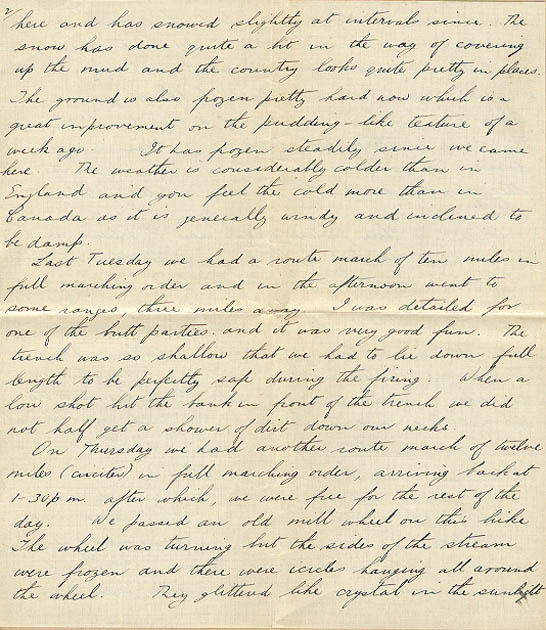 2/ here and has snowed slightly at intervals since. The
snow has done quite a bit in the way of covering
up the mud and the country looks quite pretty in places.
The ground is also frozen pretty hard now which is a
great improvement on the pudding-like texture of a
week ago. It has frozen steadily since we came
here. The weather is considerably colder than in
England and you feel the cold more than in
Canada as it is generally windy and inclined to
be damp.
Last Tuesday we had a route march of ten miles in
full marching order and in the afternoon went to
some ranges, three miles away. I was detailed for
one of the butt parties. and it was very good fun. The
trench was so shallow that we had to lie down full
length to be perfectly safe during the firing. When a
low shot hit the bank in front of the trench we did
not half get a shower of dirt down our necks.
On Thursday we had another route march of twelve
miles (circiter) in full marching order, arriving back at
1-30 p.m. after which, we were free for the rest of the
day. We passed an old mill wheel on this hike
The wheel was turning but the sides of the stream
were frozen and there were icicles hanging all around
the wheel. They glittered like crystal in the sunlight